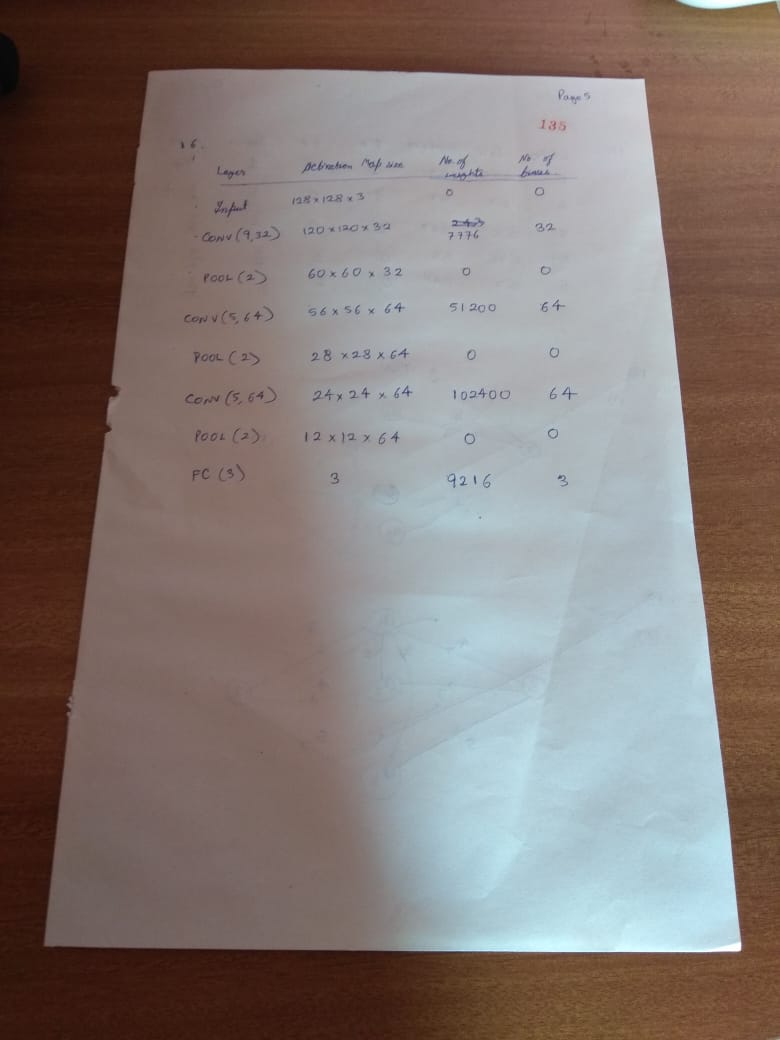 Page 5
135
16.
Layer Activation Map size No. of weights No. of biases
Input 128 x 128 x 3 0 0
CONV (9,32) 120 x 120 x 32 7776 32
POOL (2) 60 x 60 x 32 0 0
CONV (5,64) 56 x 56 x 64 51200 64
POOL (2) 28 x 28 x 64 0 0
CONV (5,64) 24 x 24 x 64 102400 64
POOL (2) 12 x 12 x 64 0 0
FC (3) 3 9216 3